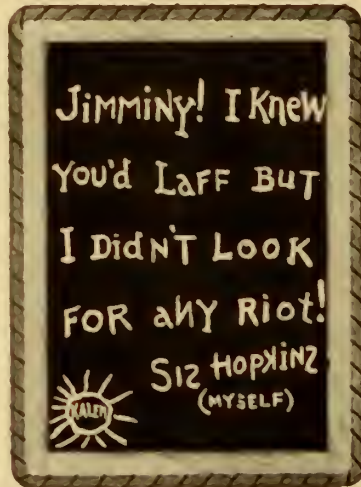 JiMMiNy! I Knew
You'd LaFF BuT
I DidN'T LooK
FOR aNY Riot!
Sis HopKiNs
(MYSELF)
KALEM